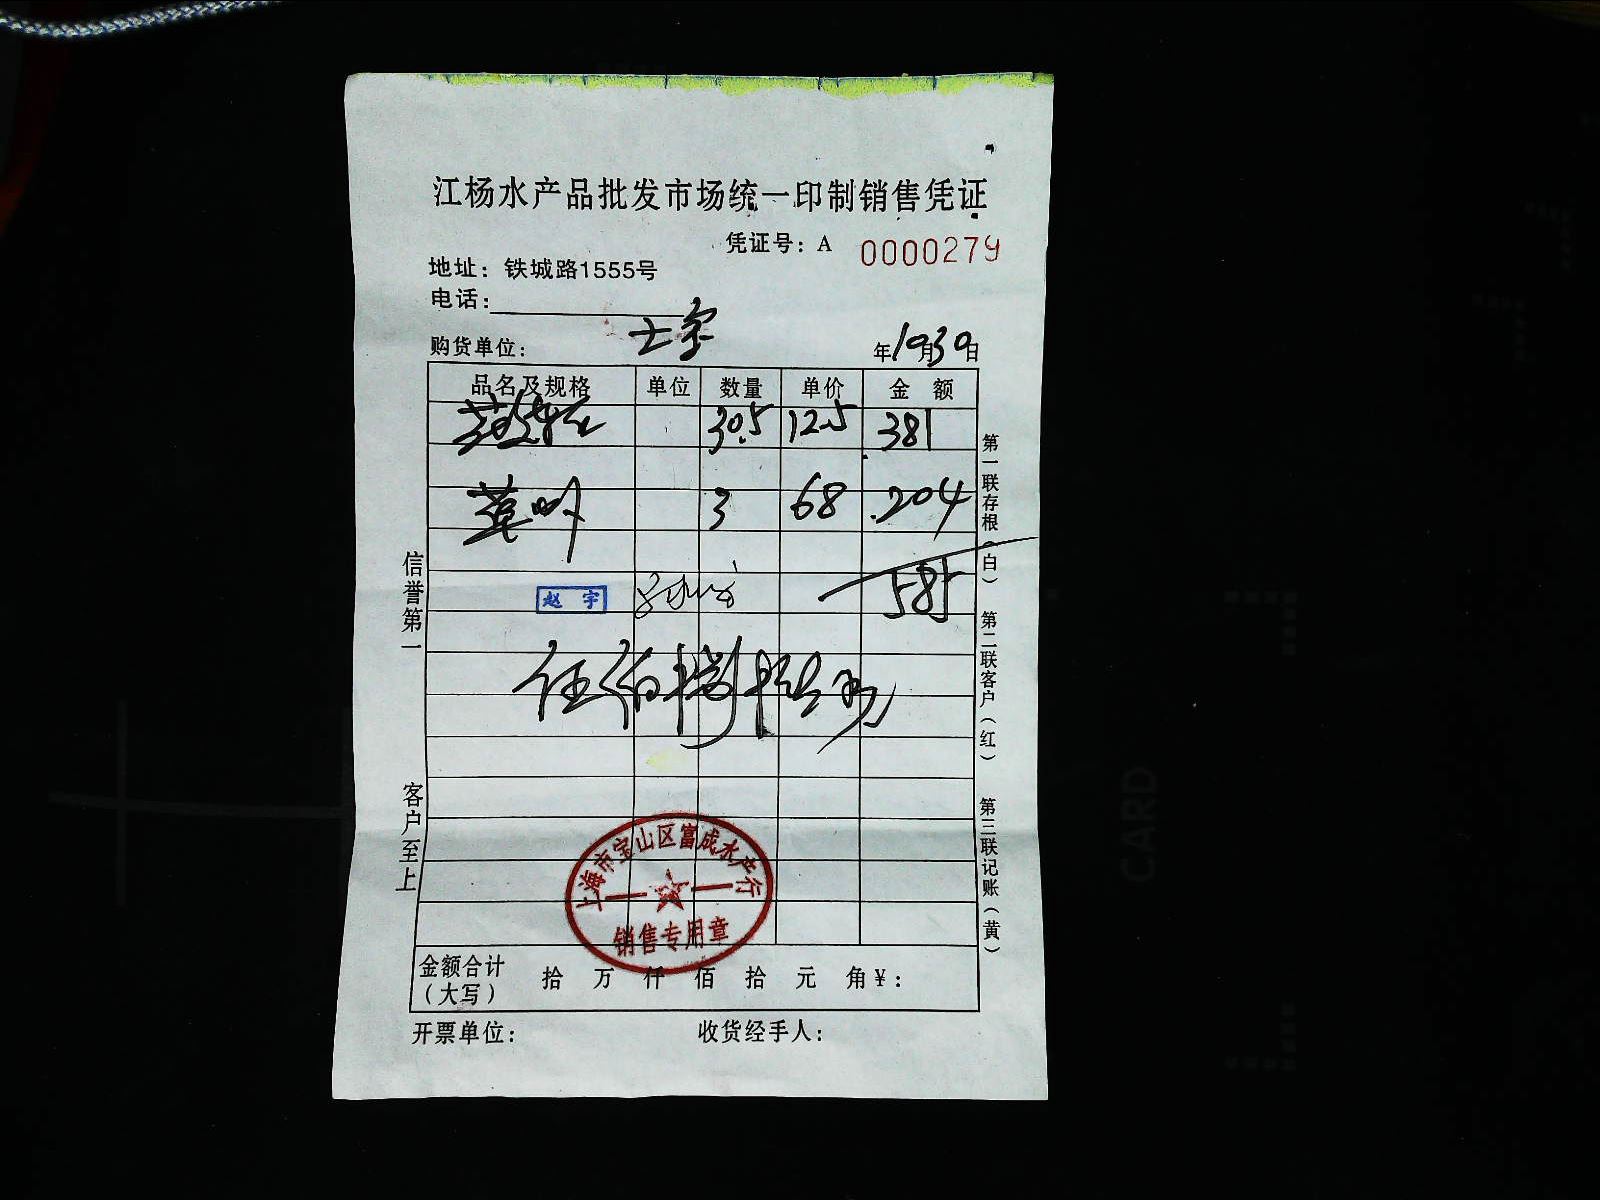 江杨水产品批发市场统一印制销售凭证
凭证号：A 0000279
地址：铁城路1555号
电话：
购货单位：
年10月30日
品名及规格 单位 数量 单价 金额
30.5 12.5 381
草虾 3 68 204
赵宇
585
伍佰捌拾伍
上海市宝山区富成水产行
销售专用章
金额合计（大写） 拾 万 仟 佰 拾 元 角 ¥：
开票单位： 收货经手人：
信誉第一
客户至上
第一联存根（白）
第二联客户（红）
第三联记账（黄）
CARD